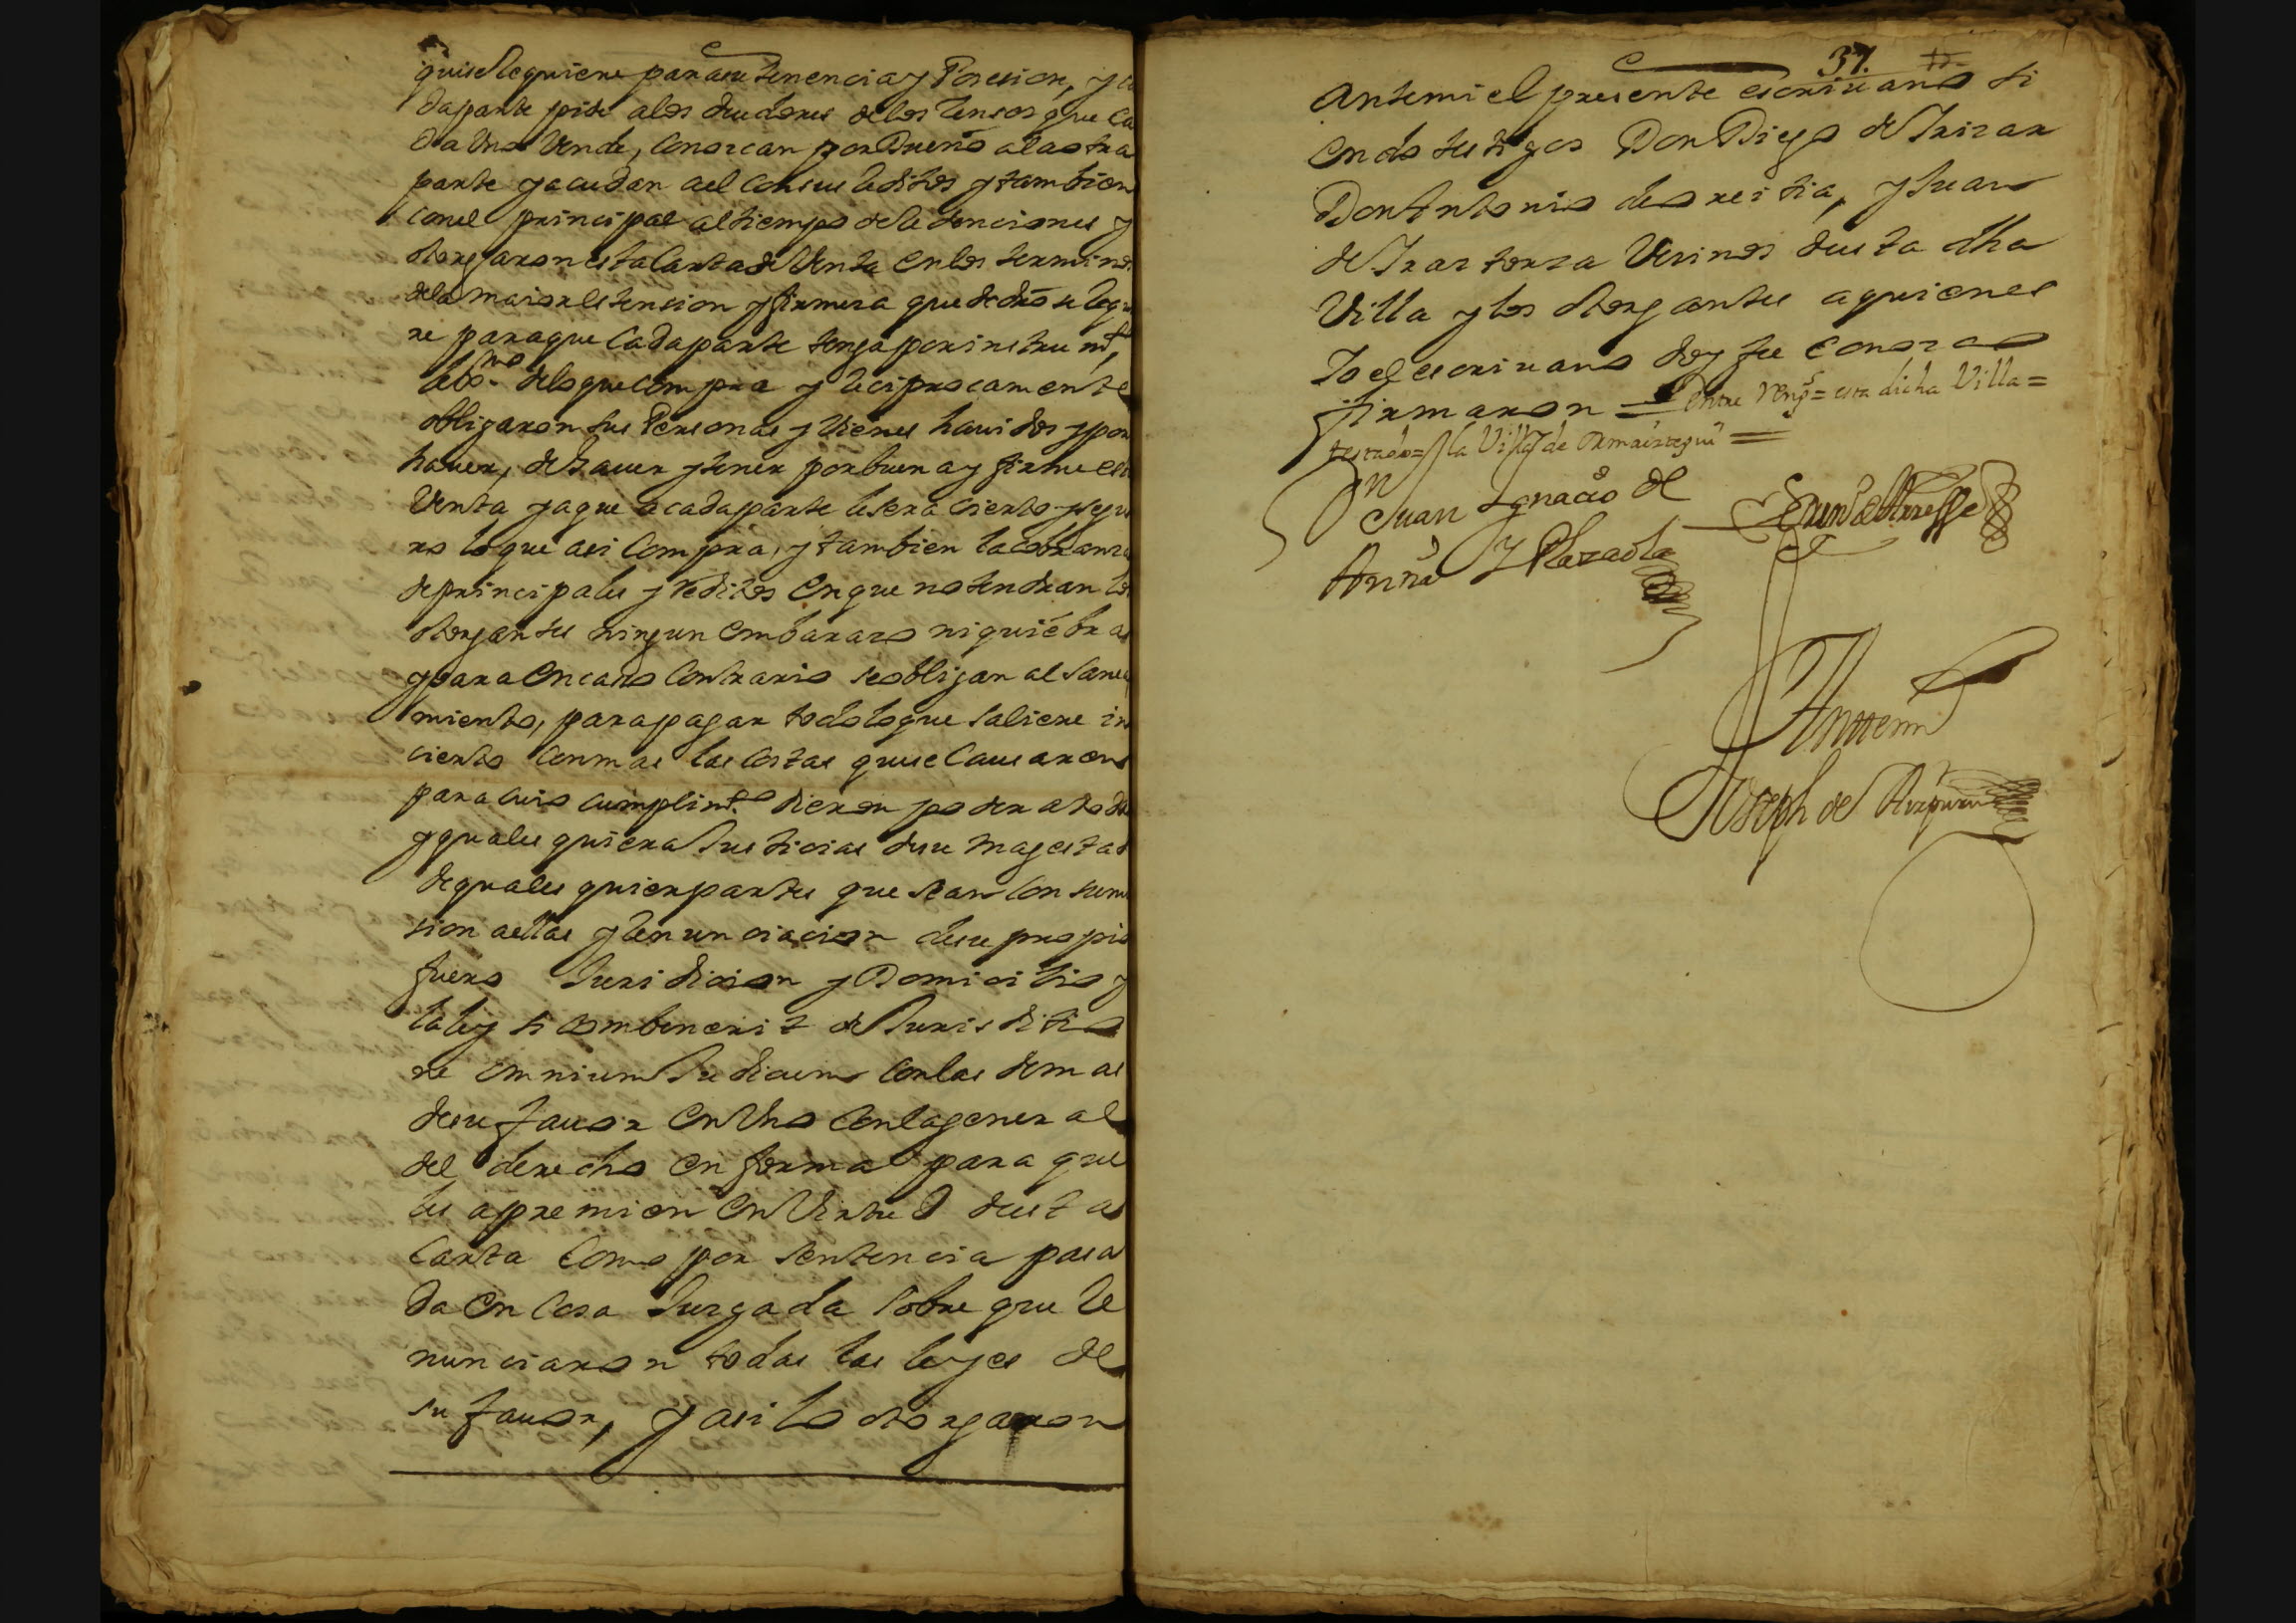 quisele quiere para su tenencia y Posesion, y ca
da parte pide alos deudores delos Censos que ca
da uno Vende, Conozcan por Dueño a la otra
parte y acudan ael con sus Reditos y tambien
con el principal al tiempo de Redenciones y
otorgaron esta Carta de Venta en los terminos
dela maior extension y firmeza que de dro se requie
re para que Cada parte tenga por instrumto,
delo que compra y Reciprocamente
obligaron sus Personas y Vienes hauidos y por
hauer, de hauer y tener por buena y firme esta
Venta y a que a cada parte le sera Cierto y segu
ro lo que asi Compra, y tambien la cobranza
de principales y reditos en que no tendran los
otorgantes ningun embarazo ni quiebra
y para en caso Contrario se obligan al sanea
miento, para pagar todo lo que saliere in
cierto Con mas las Costas que se Causaren
para cuio cumplimto dieron poder a todas
y quales quiera Justicias de su Magestad
de quales quier partes que sean Con sumi
sion a ellas y Renunciacion de su propio
fuero Juridicion y Domicilio y
la ley si combenerit de Jurisditio
ne omnium Judicum Con las demas
de su fauor en Uno Con la general
del derecho en forma para que
les apremien en Virtud de esta
Carta Como por Sentencia pasa
da en Cosa Juzgada sobre que Re
nunciaron todas las leyes de
su fauor, y asi lo otorgaron
37.
Ante mi el presente escriuano si
endo testigos Don Diego de Irizar
Don Antonio de oreitia, y Juan
de Irastorza Vecinos de esta dha
Villa y los otorgantes a quienes
Yo el escriuano doy fee Conozco
firmaron = Entre Reng.s = esta dicha Villa =
testado = la Villa de Ormaiztegui =
Juan Ignacio de
Anttemi
Joseph de Aizpuru